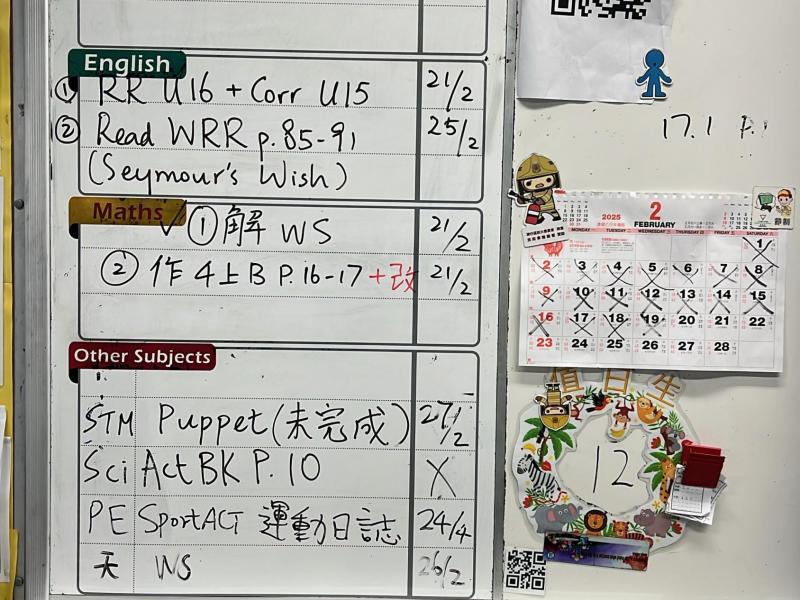 English
① RR U16 + Corr U15 21/2
② Read WRR p.85-91 25/2
(Seymour's Wish)
Maths
✓ ① 解 WS 21/2
② 作 4上B P.16-17 +改 21/2
Other Subjects
STM Puppet (未完成) 27/2
Sci Act BK P.10 X
PE Sport ACT 運動日誌 24/4
天 WS 26/2
17.1
節制
2025 2 FEBRUARY
MONDAY TUESDAY WEDNESDAY THURSDAY FRIDAY SATURDAY
1
2 3 4 5 6 7 8
9 10 11 12 13 14 15
16 17 18 19 20 21 22
23 24 25 26 27 28
值日生
12